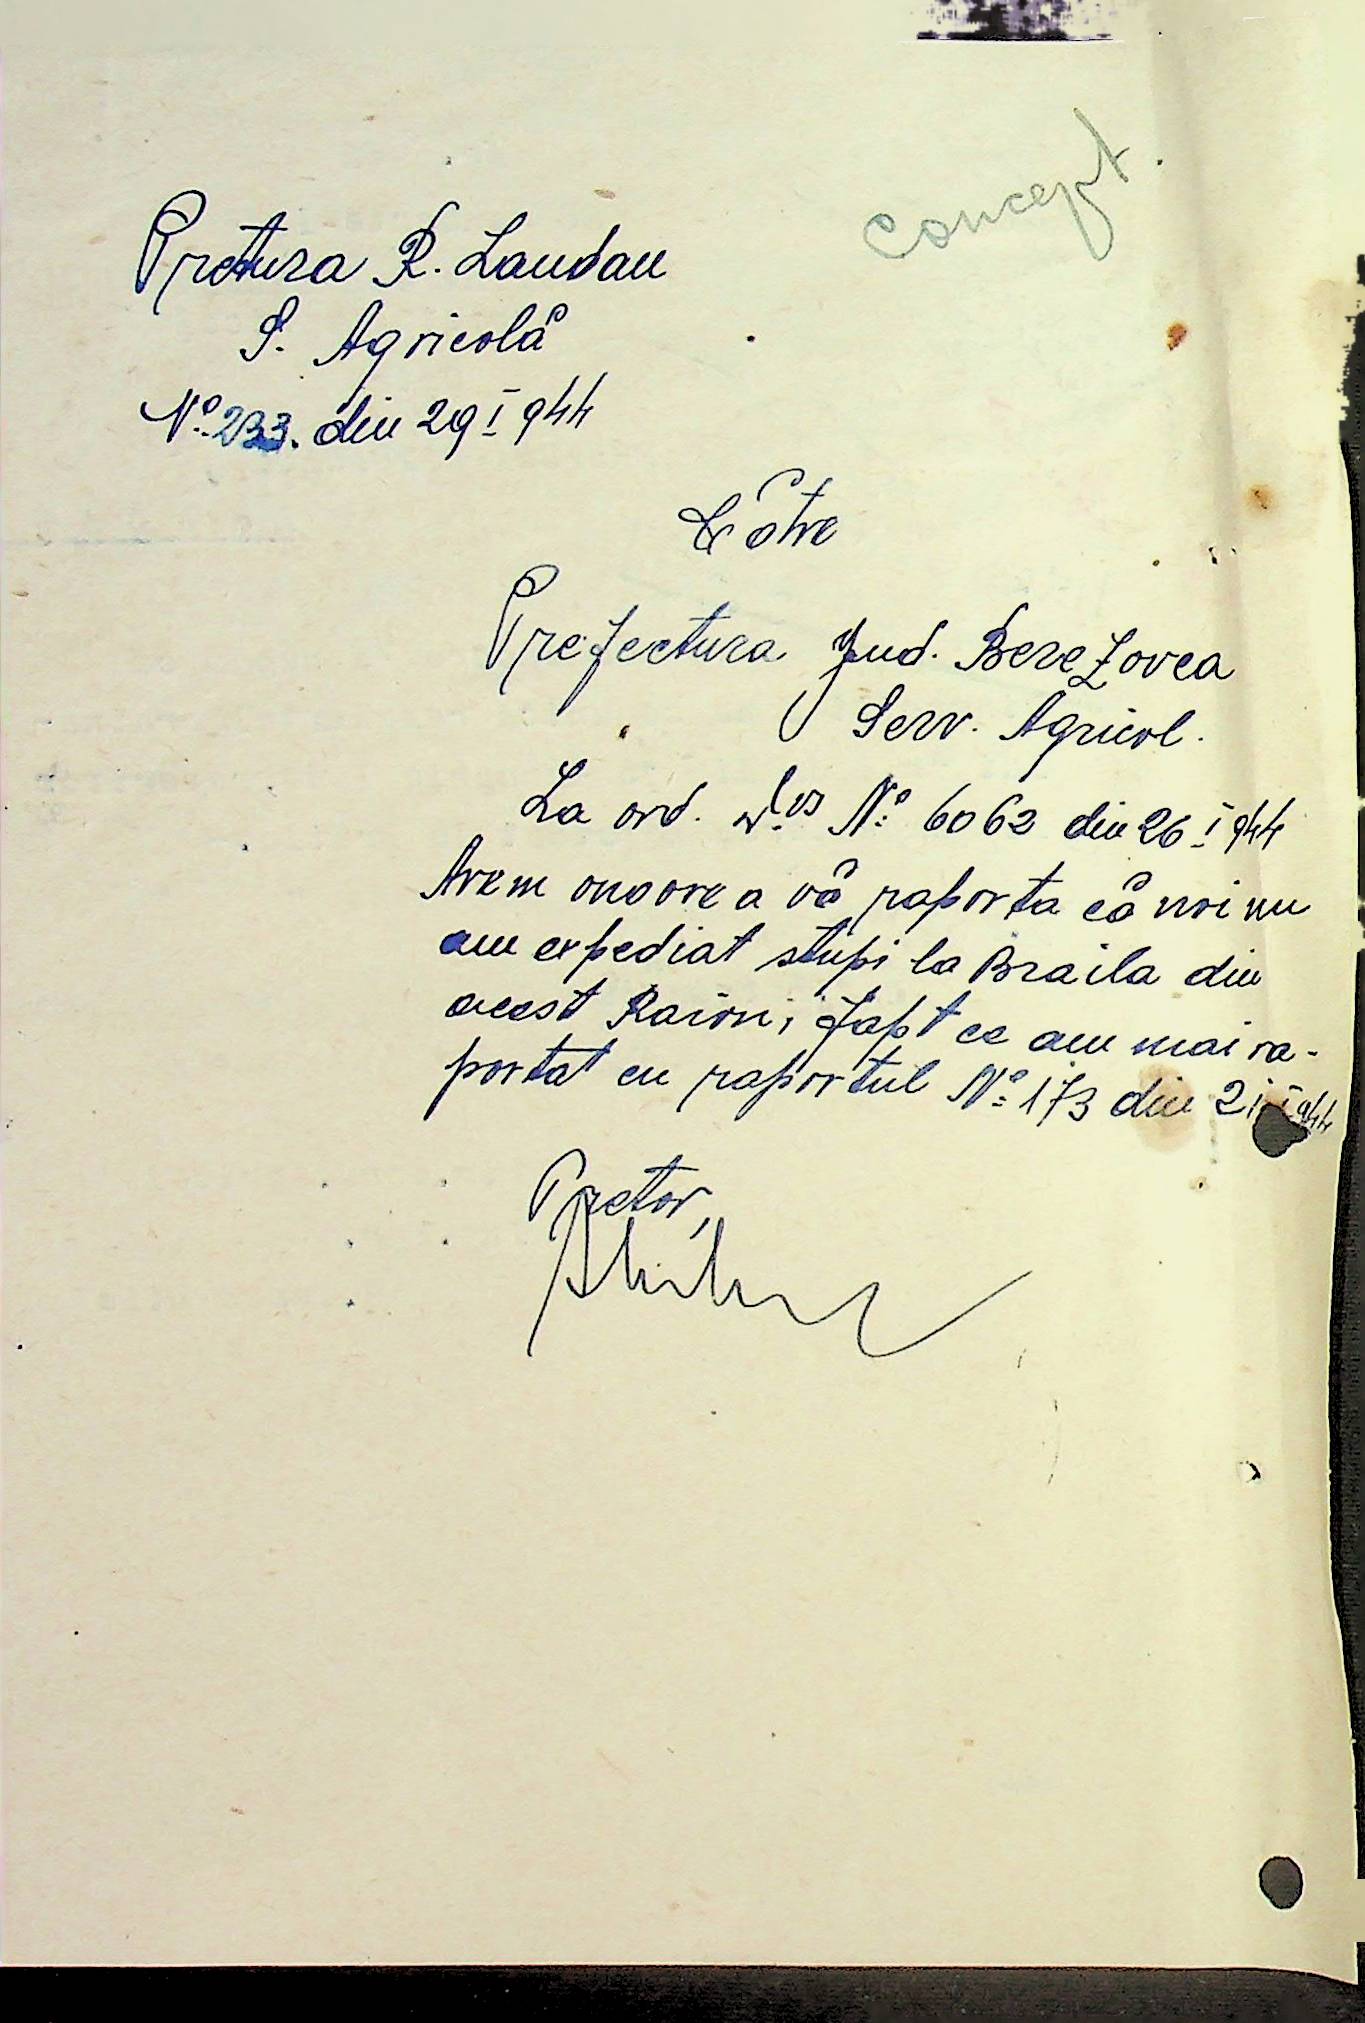 Concept.
Pretura R. Landau
S. Agricolă
Nº 233. din 29 I 944
Către
Prefectura Jud. Berezovca
Serv. Agricol.
La ord. Nº 6062 din 26 I 944
Avem onoarea vă raporta că noi nu
am expediat stupi la Braila din
acest Raion; fapt ce am mai ra-
portat cu raportul Nº 173 din 21 I 944
Pretor,